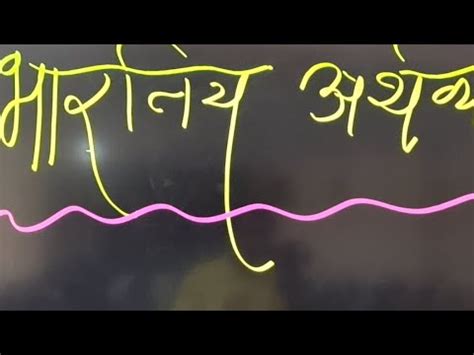 भारतिय अर्थव्य